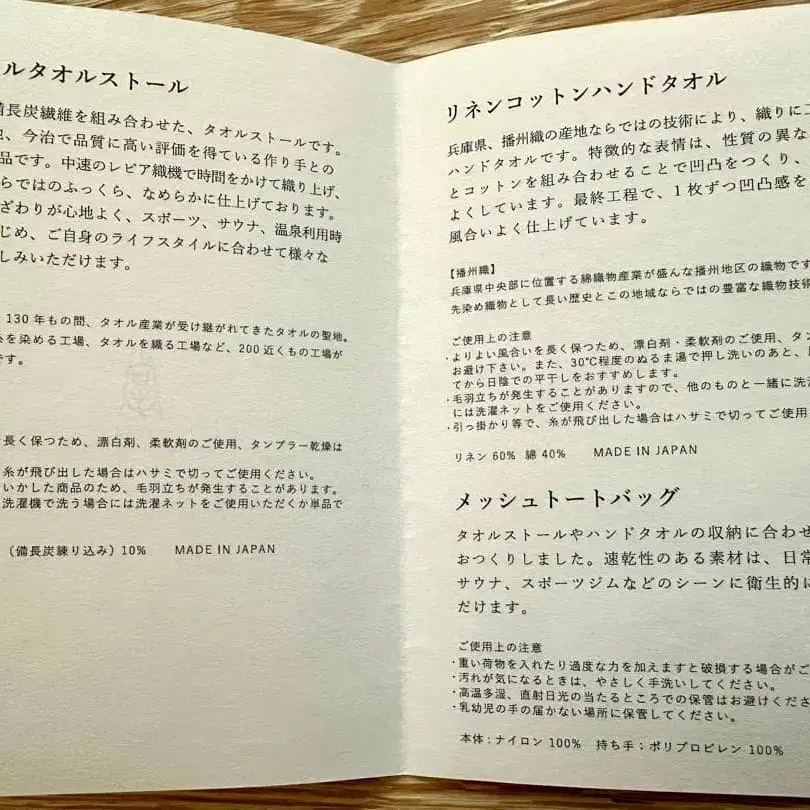 ルタオルストール
備長炭繊維を組み合わせた、タオルストールです。
、今治で品質に高い評価を得ている作り手との
品です。中速のレピア織機で時間をかけて織り上げ、
らではのふっくら、なめらかに仕上げております。
ざわりが心地よく、スポーツ、サウナ、温泉利用時
じめ、ご自身のライフスタイルに合わせて様々な
しみいただけます。
130年もの間、タオル産業が受け継がれてきたタオルの聖地。
を染める工場、タオルを織る工場など、200近くもの工場が
です。
長く保つため、漂白剤、柔軟剤のご使用、タンブラー乾燥は
糸が飛び出した場合はハサミで切ってご使用ください。
いかした商品のため、毛羽立ちが発生することがあります。
洗濯機で洗う場合には洗濯ネットをご使用いただくか単品で
(備長炭練り込み) 10% MADE IN JAPAN
リネンコットンハンドタオル
兵庫県、播州織の産地ならではの技術により、織りに
ハンドタオルです。特徴的な表情は、性質の異な
とコットンを組み合わせることで凹凸をつくり、
よくしています。最終工程で、1枚ずつ凹凸感を
風合いよく仕上げています。
【播州織】
兵庫県中央部に位置する綿織物産業が盛んな播州地区の織物です
先染め織物として長い歴史とこの地域ならではの豊富な織物技術
ご使用上の注意
・よりよい風合いを長く保つため、漂白剤・柔軟剤のご使用、タン
お避け下さい。また、30℃程度のぬるま湯で押し洗いのあと、
てから日陰での平干しをおすすめします。
・毛羽立ちが発生することがありますので、他のものと一緒に洗濯
には洗濯ネットをご使用ください。
・引っ掛かり等で、糸が飛び出した場合はハサミで切ってご使用
リネン 60% 綿 40% MADE IN JAPAN
メッシュトートバッグ
タオルストールやハンドタオルの収納に合わせ
おつくりしました。速乾性のある素材は、日常
サウナ、スポーツジムなどのシーンに衛生的に
だけます。
ご使用上の注意
・重い荷物を入れたり過度な力を加えますと破損する場合がご
・汚れが気になるときは、やさしく手洗いしてください。
・高温多湿、直射日光の当たるところでの保管はお避けくださ
・乳幼児の手の届かない場所に保管してください。
本体:ナイロン 100% 持ち手:ポリプロピレン 100%